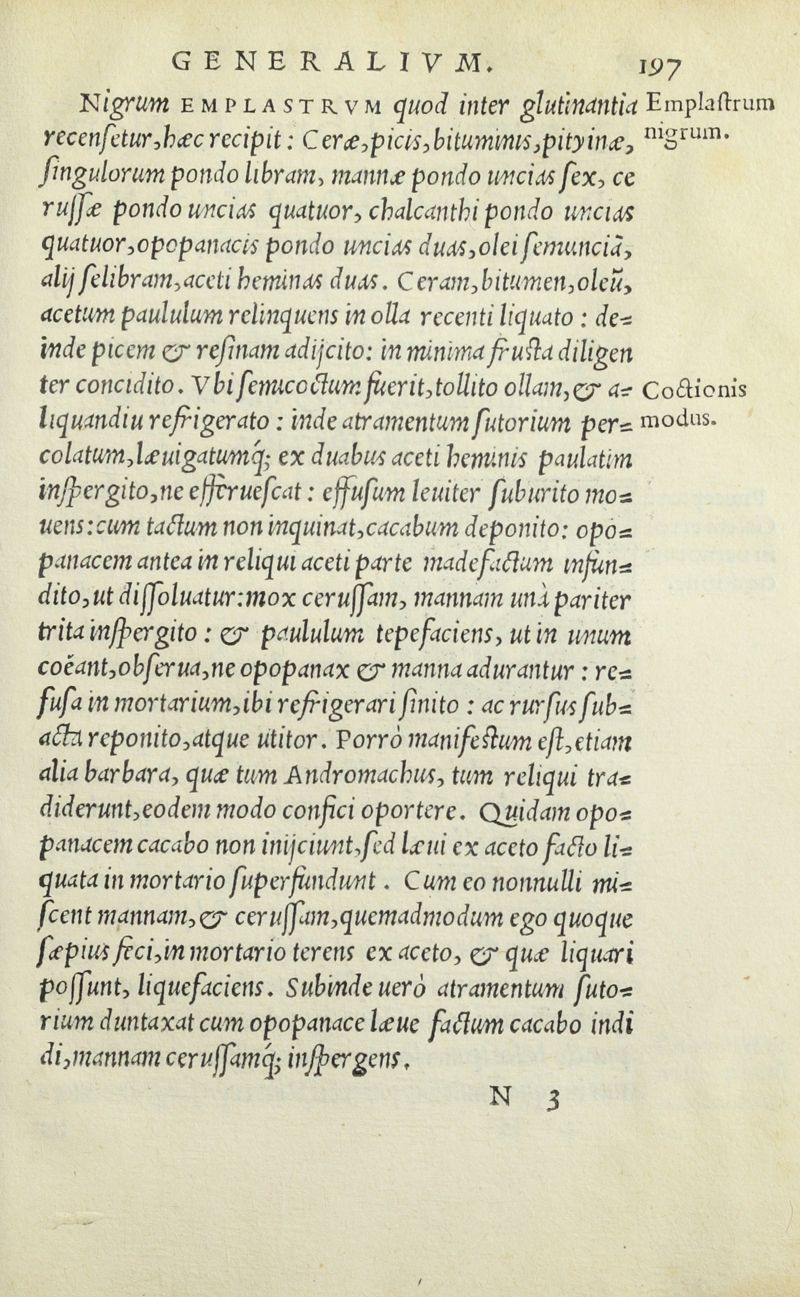 GENERALIVM. 197
Nigrum EMPLASTRVM quod inter glutinantia Emplaſtrum
recenſetur, hæc recipit: Ceræ, picis, bituminis, pityinæ, nigrum.
ſingulorum pondo libram, mannæ pondo uncias ſex, ce
ruſſæ pondo uncias quatuor, chalcanthi pondo uncias
quatuor, opopanacis pondo uncias duas, olei ſemunciã,
alij ſelibram, aceti heminas duas. Ceram, bitumen, oleũ,
acetum paululum relinquens in olla recenti liquato: de-
inde picem & reſinam adijcito: in minima fruſta diligen
ter concidito. Vbi ſemicoctum fuerit, tollito ollam, & a- Coctionis
liquandiu refrigerato: inde atramentum ſutorium per- modus.
colatum, læuigatumq́; ex duabus aceti heminis paulatim
inſpergito, ne efferueſcat: effuſum leuiter ſuburito mo-
uens: cum tactum non inquinat, cacabum deponito: opo-
panacem antea in reliqui aceti parte madefactum infun-
dito, ut diſſoluatur: mox ceruſſam, mannam unà pariter
trita inſpergito: & paululum tepefaciens, ut in unum
coëant, obſerua, ne opopanax & manna adurantur: re-
fuſa in mortarium, ibi refrigerari ſinito: ac rurſus ſub-
acta reponito, atque utitor. Porrò manifeſtum eſt, etiam
alia barbara, quæ tum Andromachus, tum reliqui tra-
diderunt, eodem modo confici oportere. Quidam opo-
panacem cacabo non inijciunt, ſed læui ex aceto facto li-
quata in mortario ſuperfundunt. Cum eo nonnulli mi-
ſcent mannam, & ceruſſam, quemadmodum ego quoque
ſæpius feci, in mortario terens ex aceto, & quæ liquari
poſſunt, liquefaciens. Subinde uerò atramentum ſuto-
rium duntaxat cum opopanace læue factum cacabo indi
di, mannam ceruſſamq́; inſpergens.
N 3